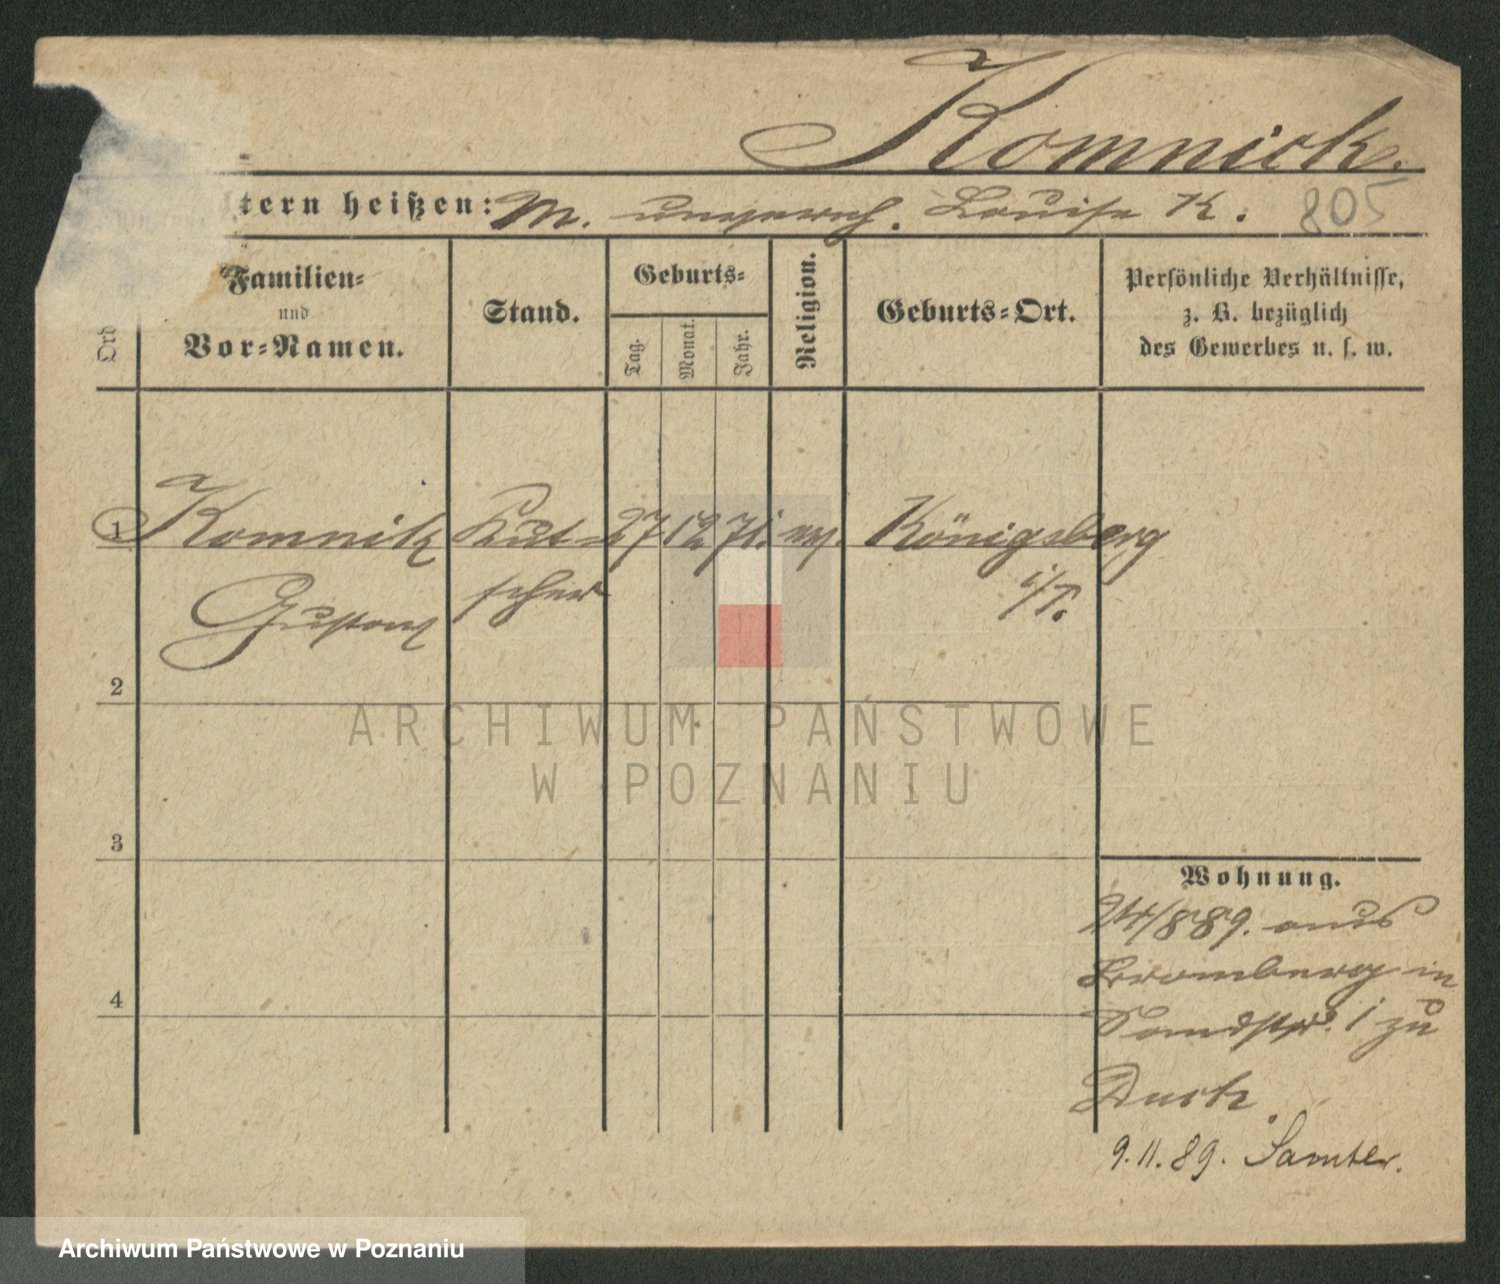 Komnick.
ltern heißen: M. unverech. Louise K. 805
Ord
Familien-
und
Vor-Namen.
Stand.
Geburts-
Tag.
Monat.
Jahr.
Religion.
Geburts-Ort.
Persönliche Verhältnisse,
z. B. bezüglich
des Gewerbes u. s. w.
1 Komnik Kut- 27 12 71. ev. Königsberg
Gustav scher i/P.
2
3
4
Wohnung.
24/8 89. aus
Bromberg in
Sandstr. 1 zu
Duck.
9.11.89. Samter.
ARCHIWUM PAŃSTWOWE
W POZNANIU
Archiwum Państwowe w Poznaniu